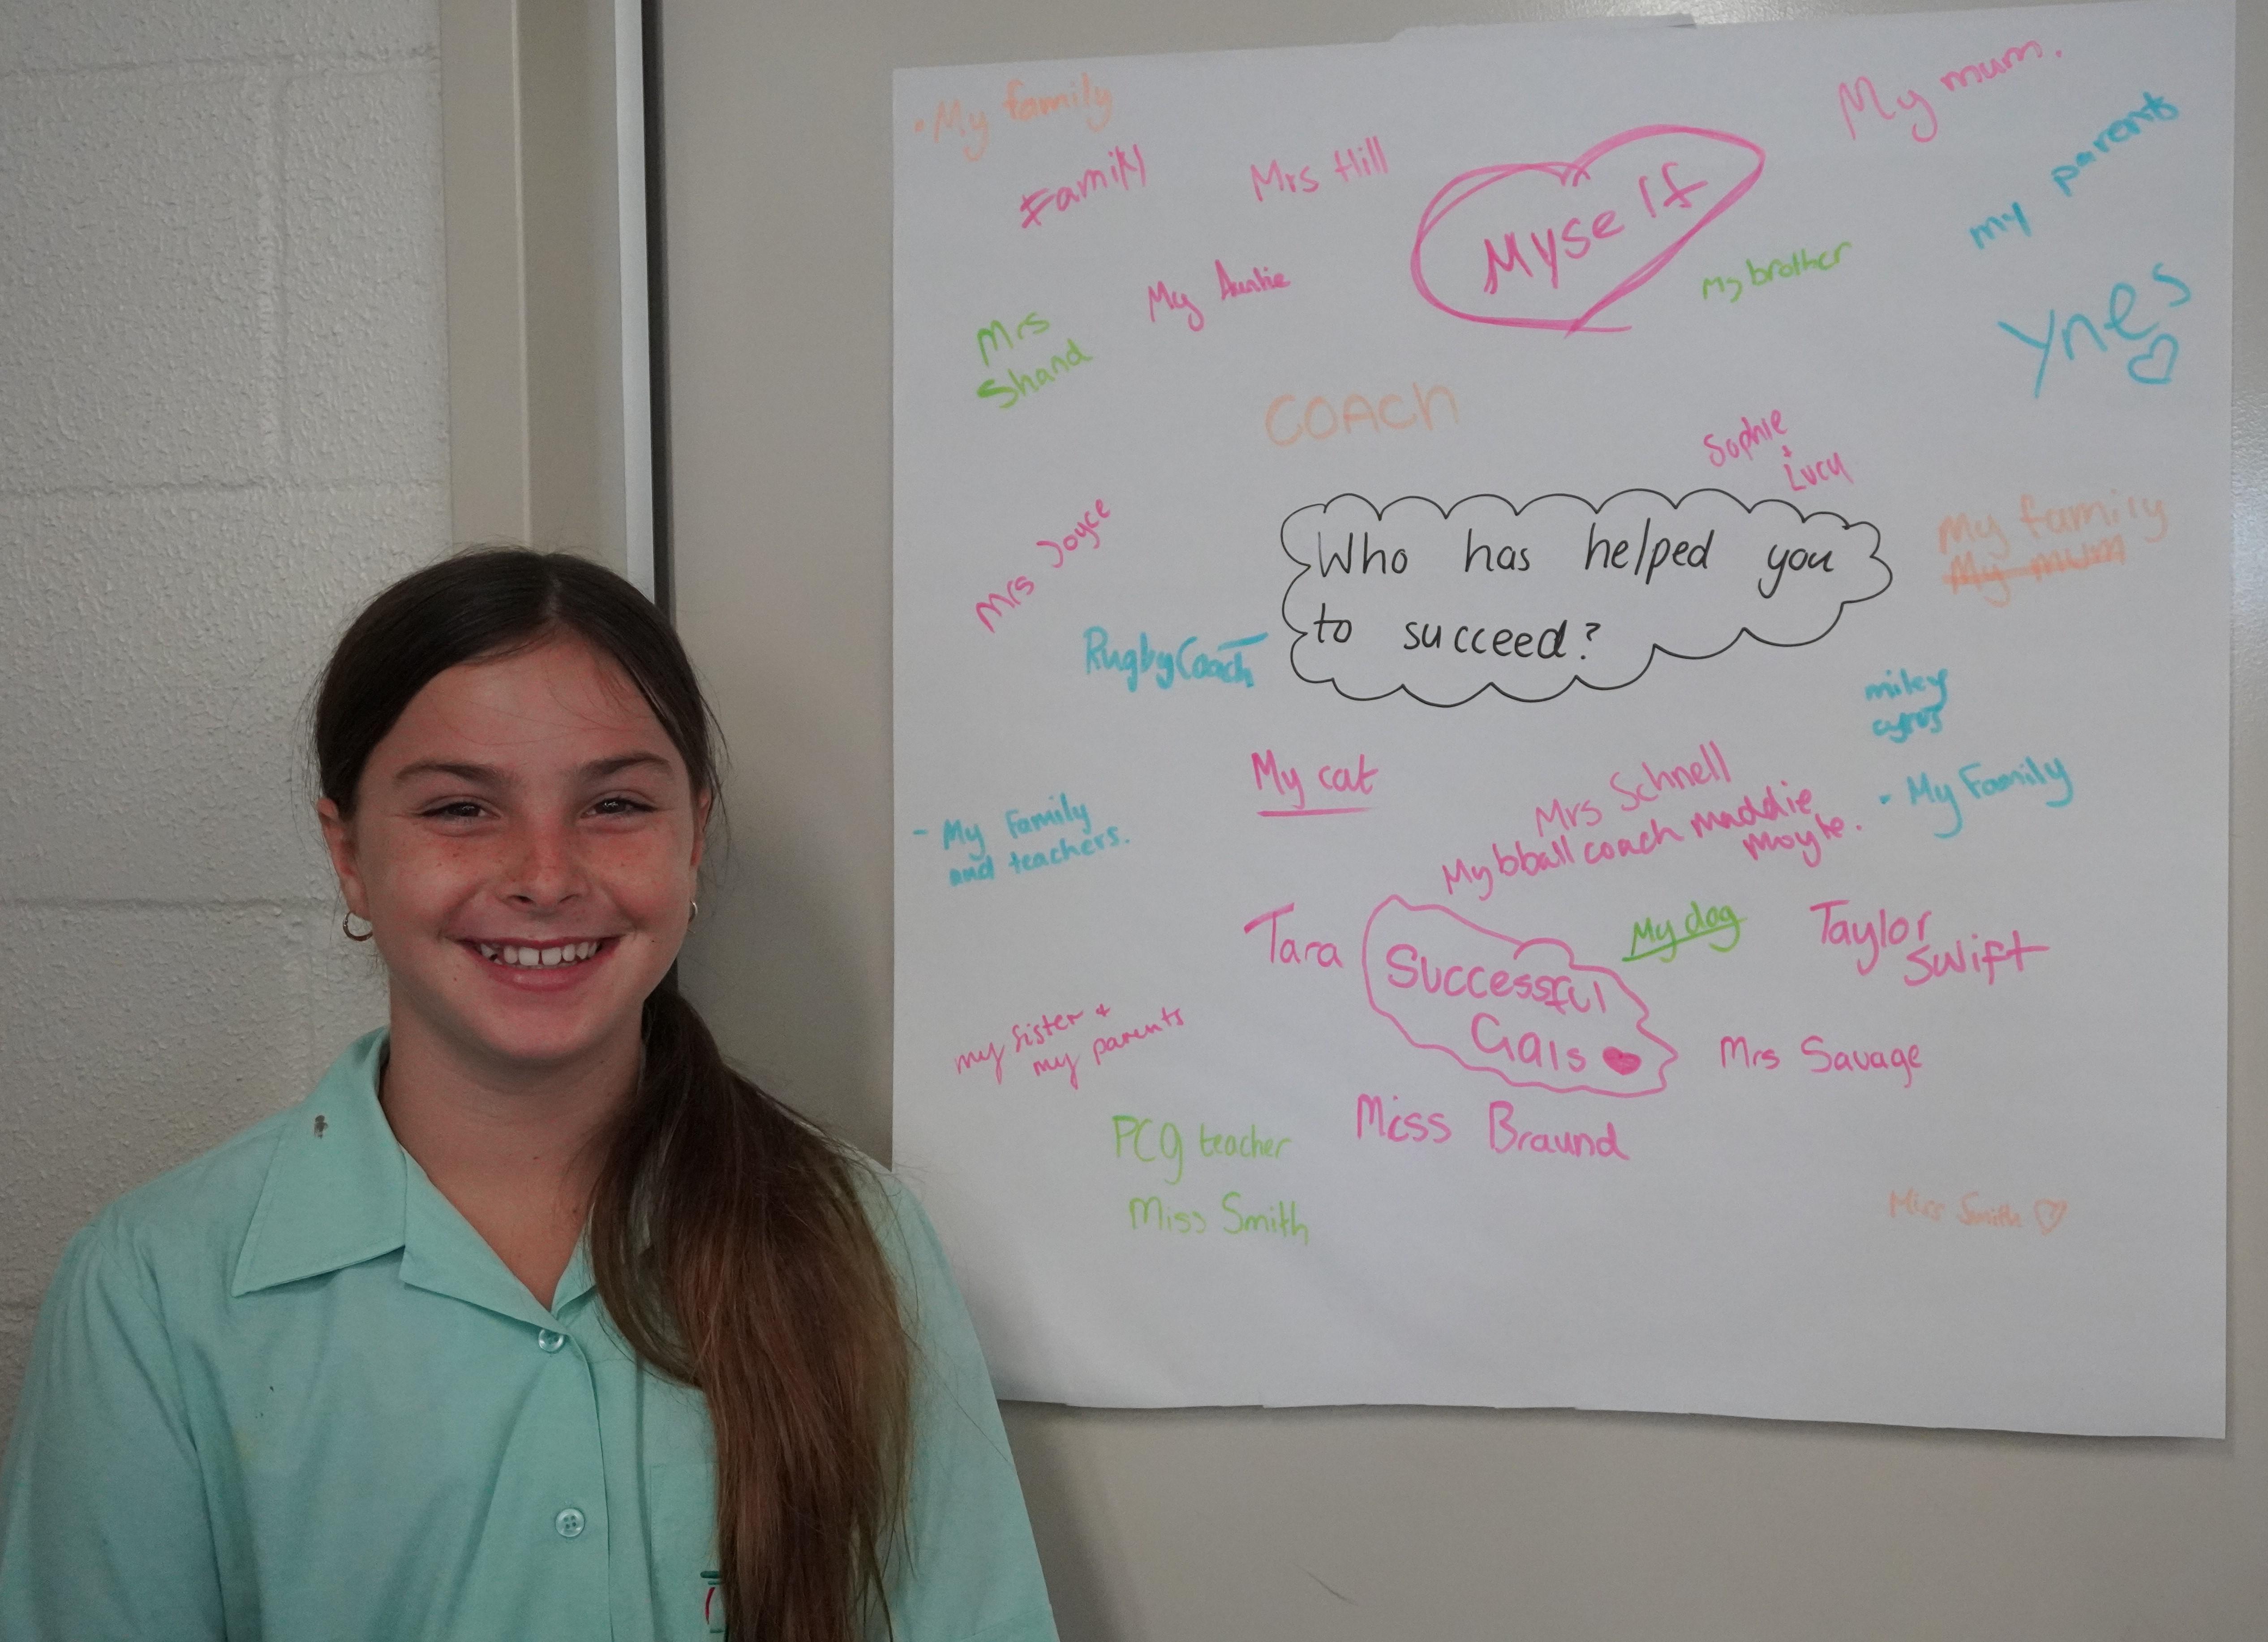 • My family
Family
Mrs Hill
Myself
My mum.
my parents
My Auntie
My brother
Mrs
Shand
Ynes
COACH
Sophie
+
Lucy
Mrs Joyce
Who has helped you
to succeed?
My family
My mum
Rugby Coach
miley
cyrus
My cat
Mrs Schnell
My bball coach maddie
moyle.
• My Family
- My Family
and teachers.
Tara
Successful
Gals
My dog
Taylor
Swift
my sister +
my parents
Mrs Savage
PCG teacher
Miss Smith
Miss Braund
Miss Smith